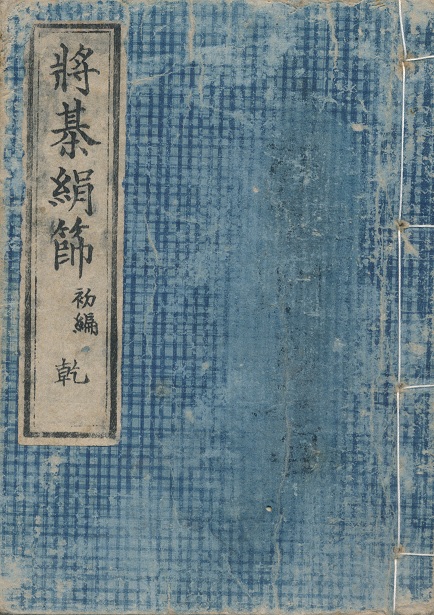 將棊絹篩
初編
乾